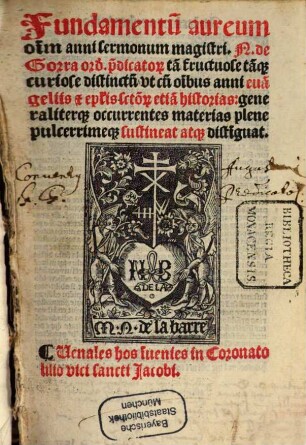 Fundamentũ aureum
oĩm anni sermonum magistri. N. de
Gorra ord. p̃dicatoꝝ tã fructuose tãqꝫ
curiose distinctũ vt cũ oĩbus anni euã
geliis ⁊ ep̃ĩs sctõꝝ etiã historias: gene
raliterqꝫ occurrentes materias plene
pulcerrimeqꝫ sustineat atqꝫ distiguat.
BIBLIOTHECA
REGIA
MONACENSIS
N B
G. DE LAB
M. N. de la barre
¶ Uenales hos inuenies in Coronato
lilio vici sancti Jacobi.
Bayerische
Staatsbibliothek
München